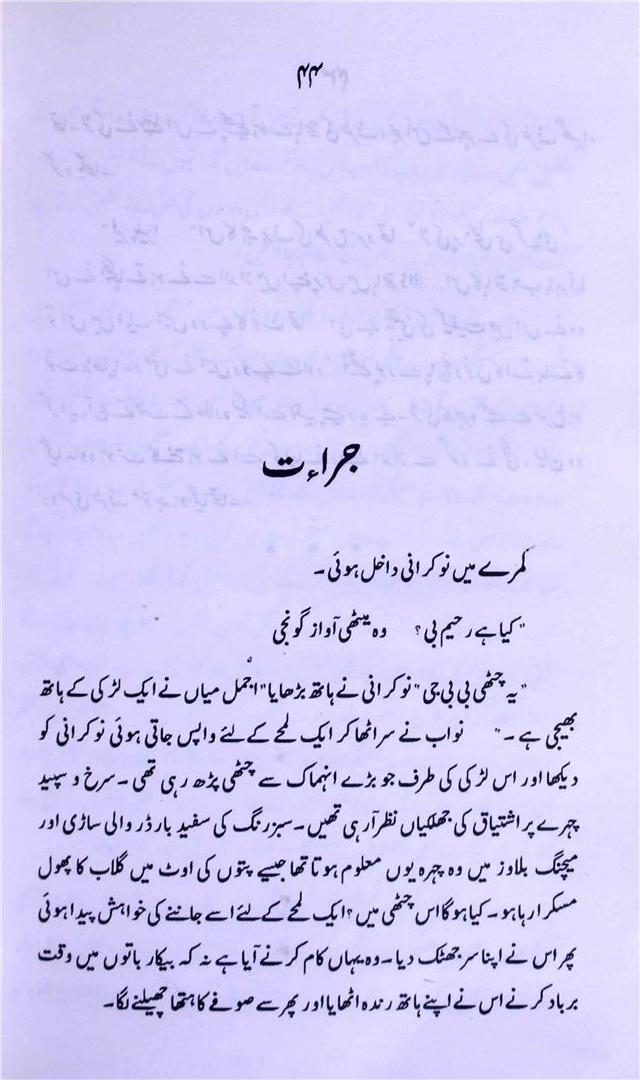 ۴۴
جراءت
کمرے میں نوکرانی داخل ہوئی۔
"کیا ہے رحیم بی؟ وہ میٹھی آواز گونجی
"یہ چٹھی بی بی جی" نوکرانی نے ہاتھ بڑھایا "اجمل میاں نے ایک لڑکی کے ہاتھ
بھیجی ہے۔" نواب نے سر اٹھا کر ایک لمحے کے لئے واپس جاتی ہوئی نوکرانی کو
دیکھا اور اس لڑکی کی طرف جو بڑے انہماک سے چٹھی پڑھ رہی تھی۔ سرخ و سپید
چہرے پر اشتیاق کی جھلکیاں نظر آرہی تھیں۔ سبز رنگ کی سفید بارڈر والی ساڑی اور
میچنگ بلاوز میں وہ چہرہ یوں معلوم ہوتا تھا جیسے پتوں کی اوٹ میں گلاب کا پھول
مسکرا رہا ہو۔ کیا ہوگا اس چٹھی میں؟ ایک لمحے کے لئے اسے جاننے کی خواہش پیدا ہوئی
پھر اس نے اپنا سر جھٹک دیا۔ وہ یہاں کام کرنے آیا ہے نہ کہ بیکار باتوں میں وقت
برباد کرنے اس نے اپنے ہاتھ رندہ اٹھایا اور پھر سے صوفے کا ہتھا چھیلنے لگا۔